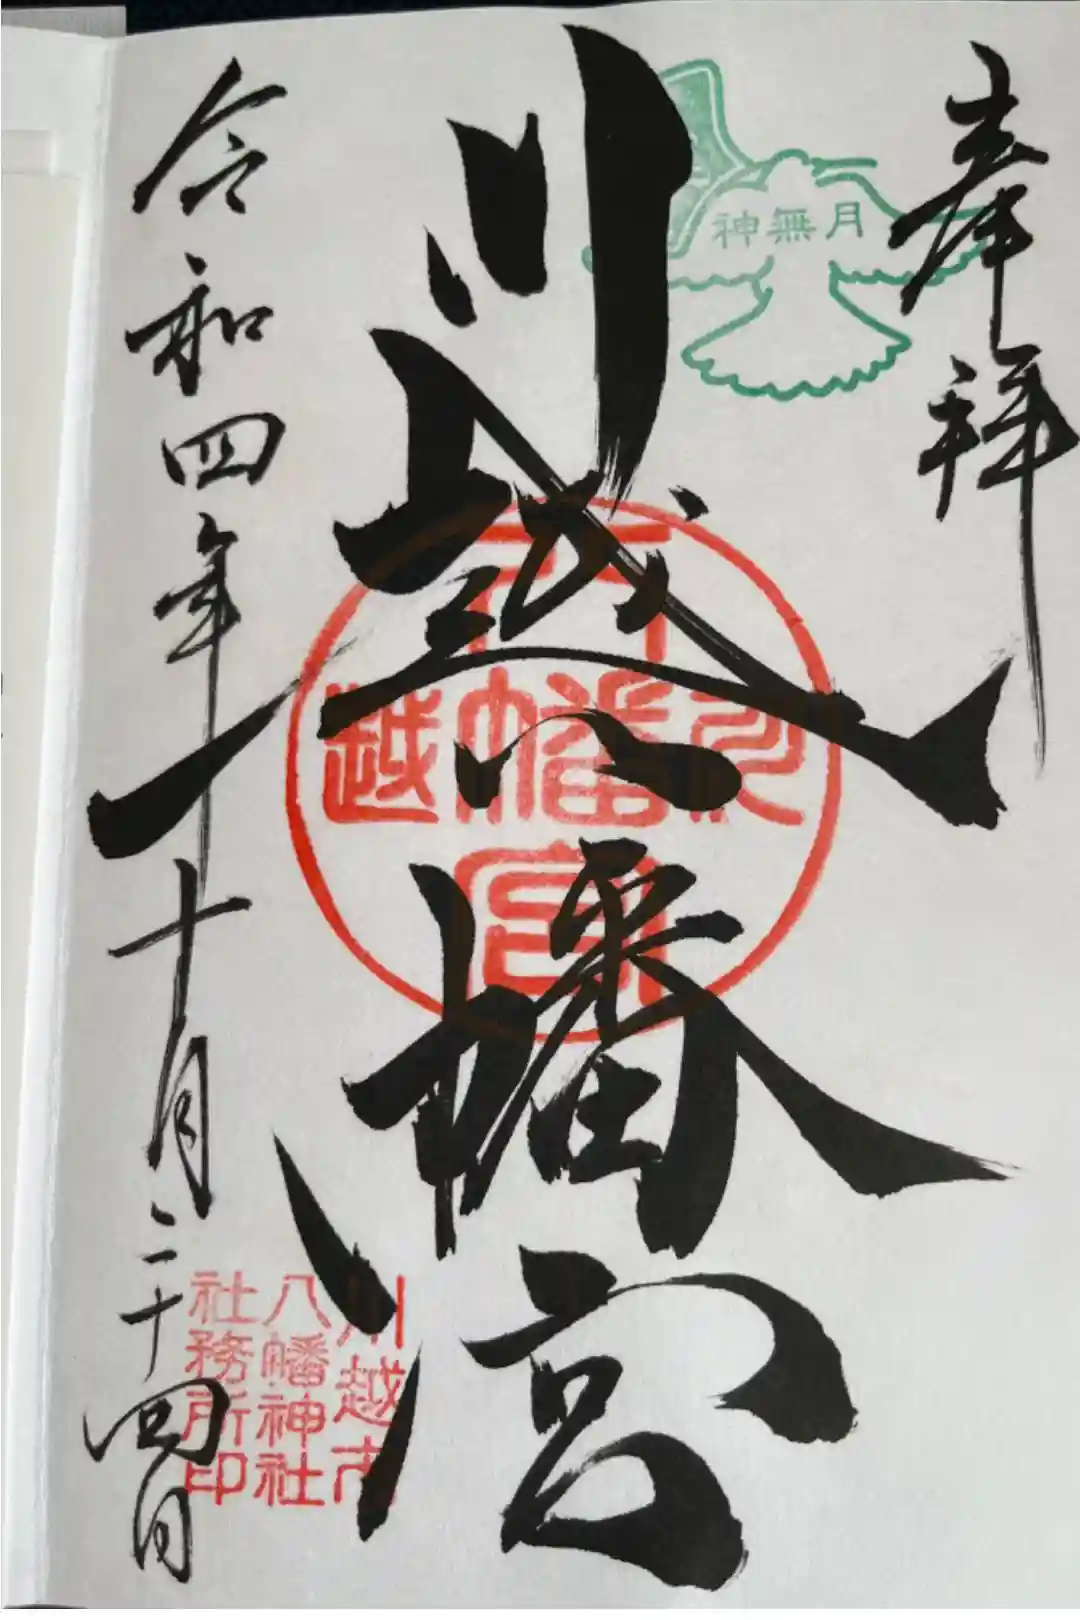 奉拝
神無月
川越八幡宮
八幡宮
川越
川越市
八幡神社
社務所印
令和四年十月二十四日